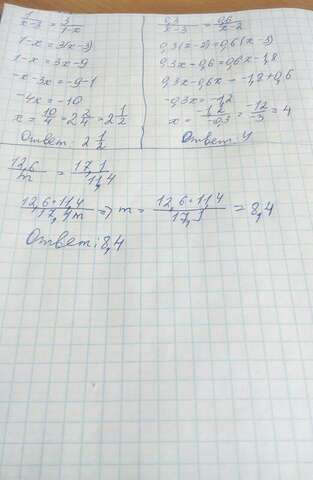 1/(x-3) = 3/(1-x)
1-x = 3(x-3)
1-x = 3x-9
-x-3x = -9-1
-4x = -10
x = 10/4 = 2 2/4 = 2 1/2
Ответ: 2 1/2
0,3/(x-3) = 0,6/(x-2)
0,3(x-2) = 0,6(x-3)
0,3x - 0,6 = 0,6x - 1,8
0,3x - 0,6x = -1,8 + 0,6
-0,3x = -1,2
x = -1,2/-0,3 = -12/-3 = 4
Ответ. 4
12,6/m = 17,1/11,4
12,6·11,4/17,1m => m = 12,6·11,4/17,1 = 8,4
Ответ: 8,4